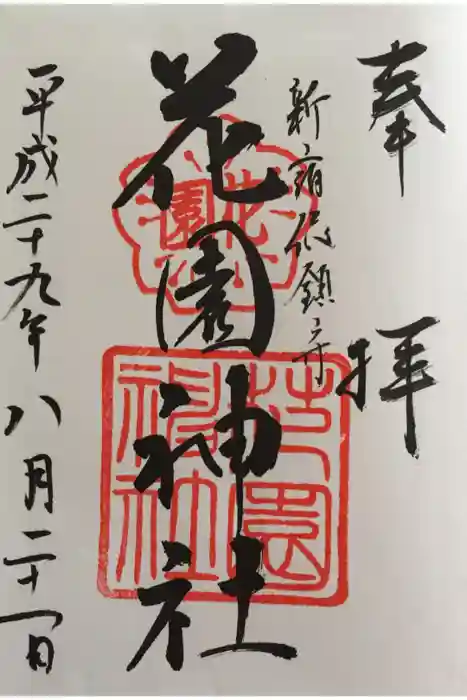 奉拝
新宿総鎮守
花園神社
平成二十九年八月二十一日
花園
花園神社